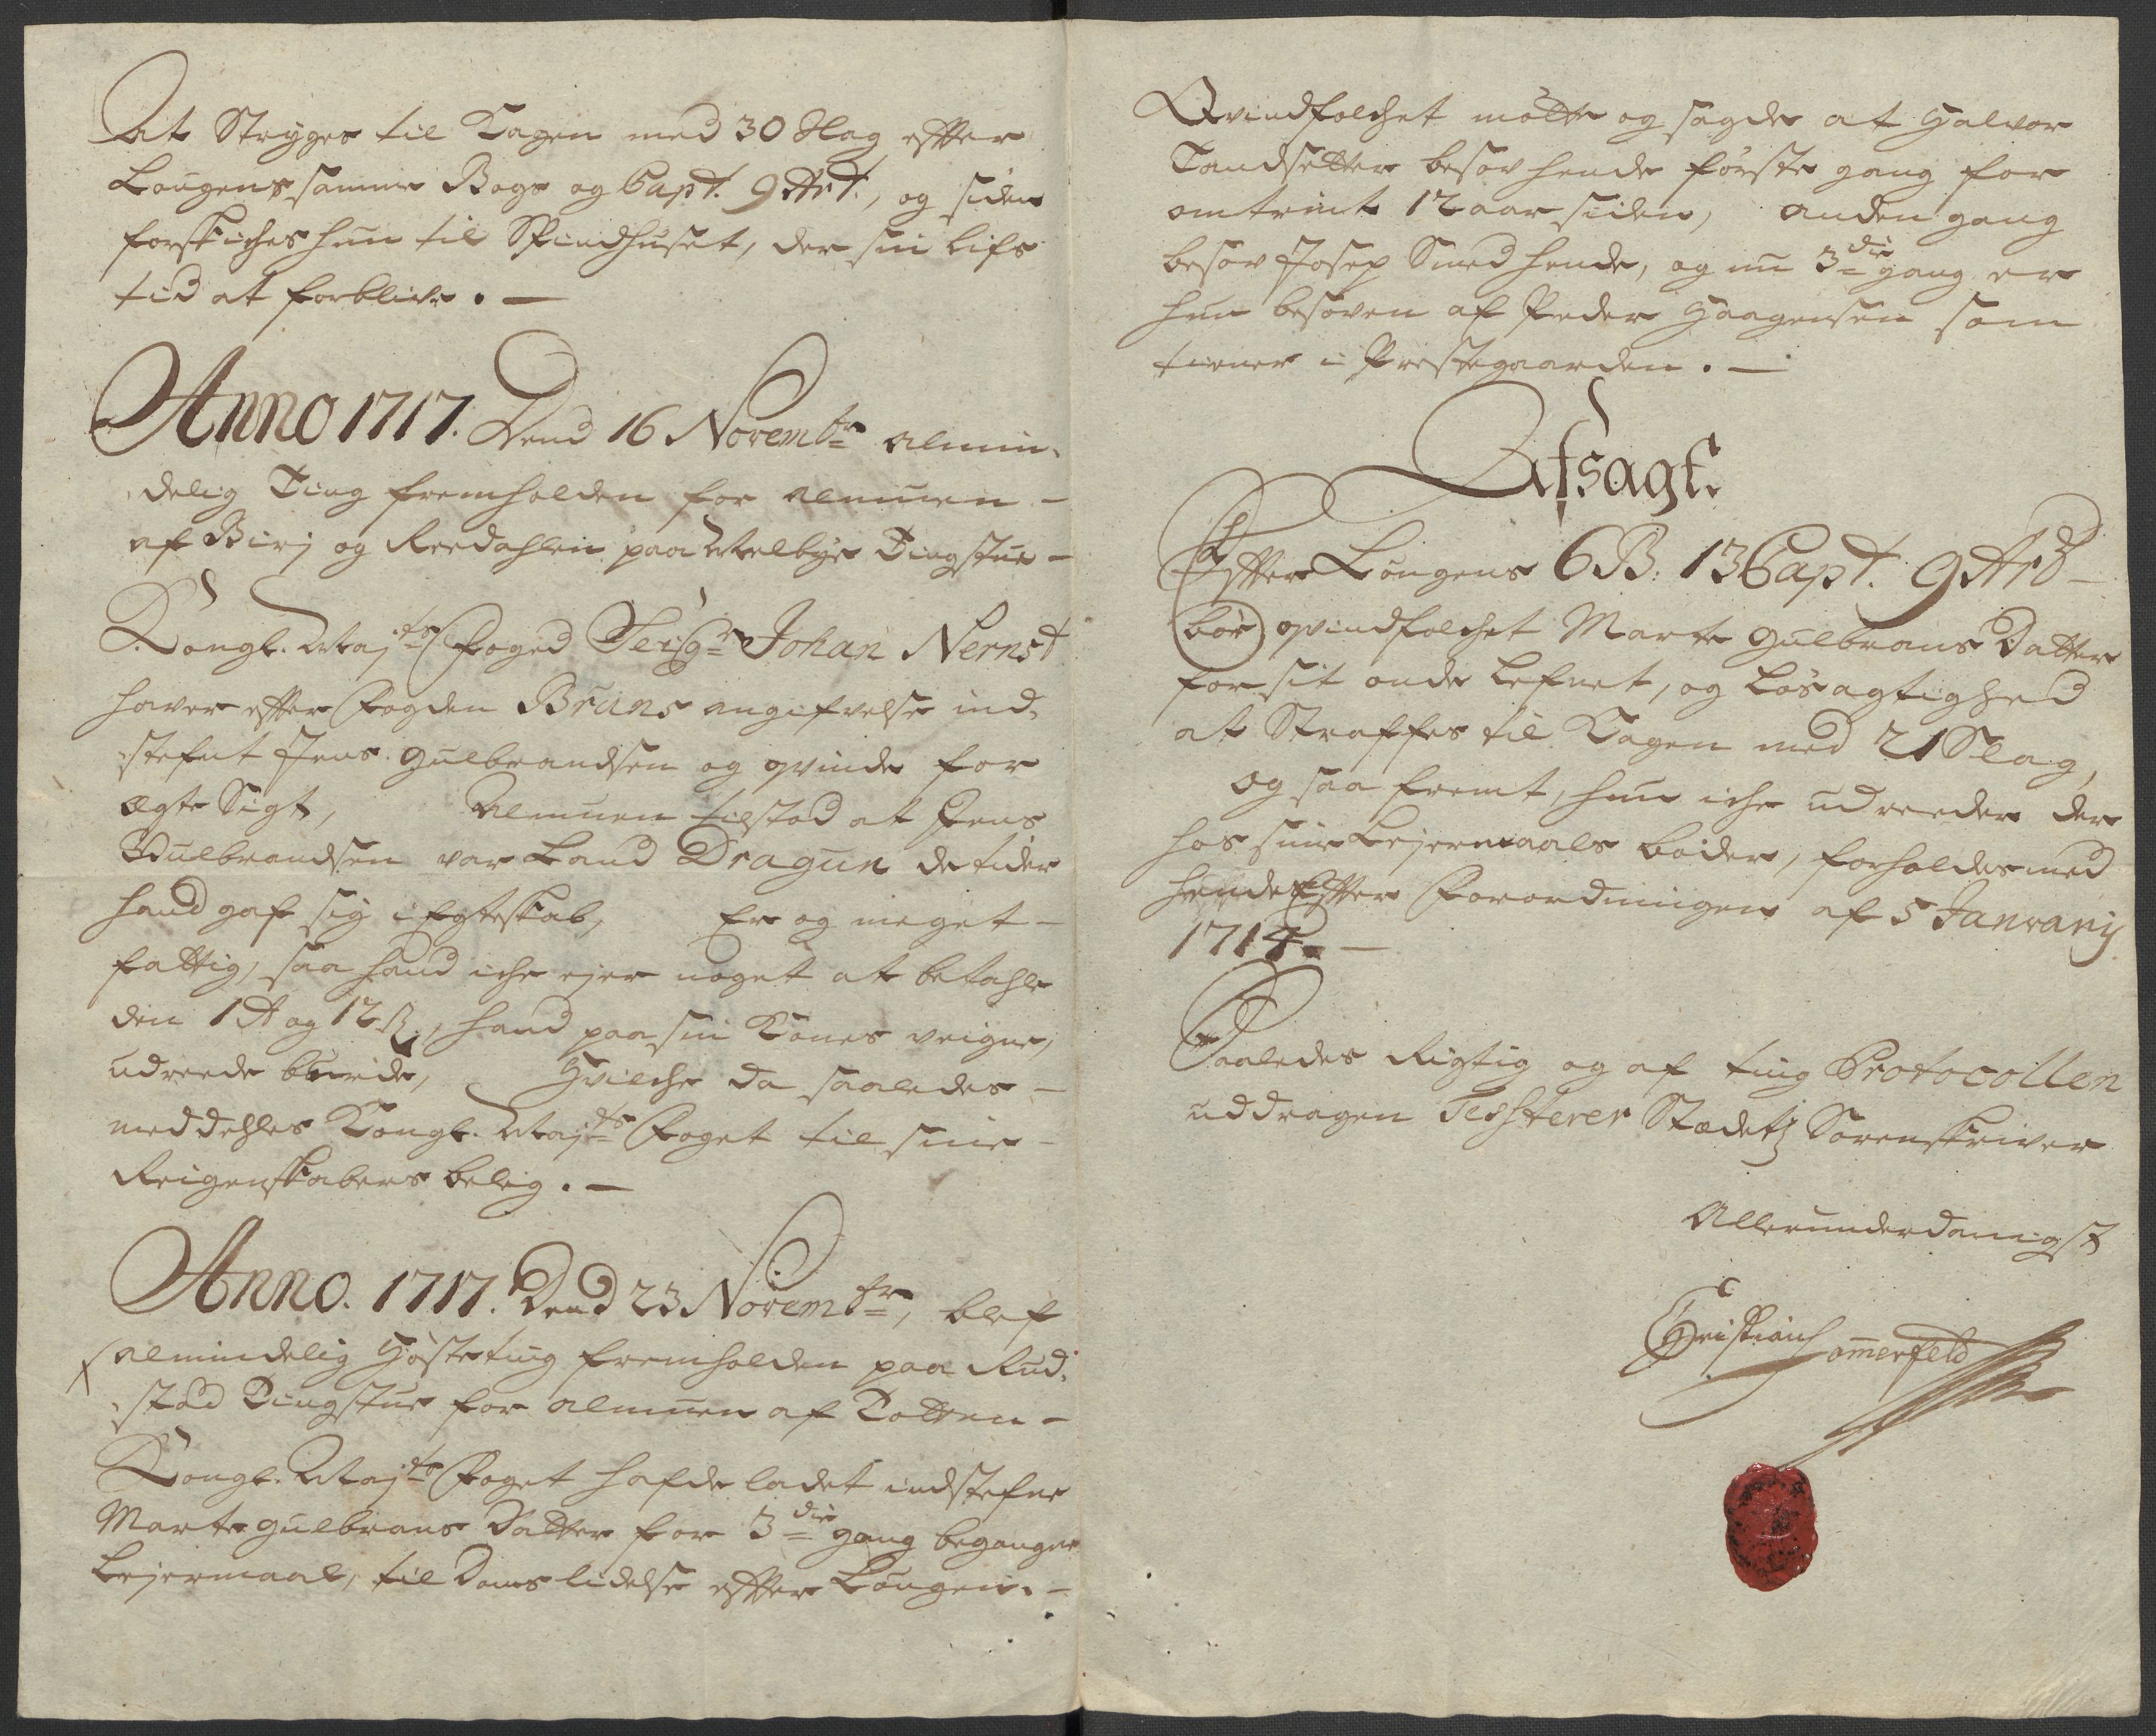 At Stryges til Kagen med 30 Slag efter
Lougens samme Bogs og Capt. 9 Art:, og siden
forskiches hun til Spindhuset, der sin lifs
tid at forblive. —
Anno 1717. Dend 16 Novembr almin-
delig Ting fremholden for almuen -
af Birj og Reedahlen paa Melbye Tingstue -
Kongl. Majts Foged Seigr Johan Nernst
haver efter Fogden Bruns angifvelse ind-
stefnt Jens Gulbrandsen og qvinde for
ægte Sigt, Almuen tilstod at Jens
Gulbrandsen var Land Dragun de tider
hand gaf sig i Egteskab, Er og meget -
fattig, saa hand iche ejer noget at betahle
den 1 og 12 ß, hand paa sin Kones veigne,
udreede burde, Hvilche da saaledes -
meddehles Kongl. Majts Foget til sine -
Reigenskabers beleg. —
Anno. 1717. Dend 23 Novembr, blef
almindelig Høsteting fremholden paa Rud-
stad Tingstue for almuen af Totten -
Kongl. Majts Foget hafde ladet indstefne
Marte Gulbrans Datter for 3die gang begangne
Lejermaal, til Doms lidelse efter Lougen. -
Qvindfolchet mötte og sagde at Halvor
Tandsetter besov hende förste gang for
omtrint 12 aar siden, anden gang
besov Josep Smed hende, og nu 3die gang er
hun besoven af Peder Haagensen som
tiener i Prestegaarden. —
Afsagt.
Efter Lougens 6 B: 13 Capt. 9 Art -
bör qvindfolchet Marte Gulbrans Datter
for sit onde Lefnet, og Lösagtighed
at Straffes til Kagen med 21 Slag,
og saa fremt, hun iche udreeder der
hos sine Lejermaals böder, forholdes med
hende Efter Forordningen af 5 Januarij
1714. —
Saaledes Rigtig og af ting Protocollen
uddragen Testerer Stædetz Sorenskriver
Allerunderdanigst
Christian Somerfeld